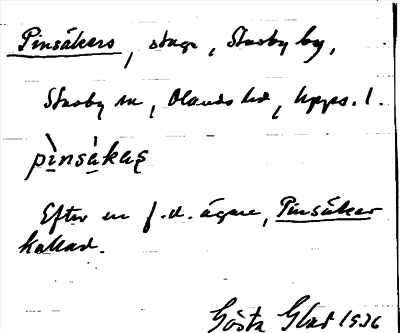 Pinsåkers, stuga, Stavby by,
Stavby sn, Olands hd, Upps. l.
pìnsákas̨
Efter en f.d. ägare, Pinsåker
kallad.
Gösta Glad 1936